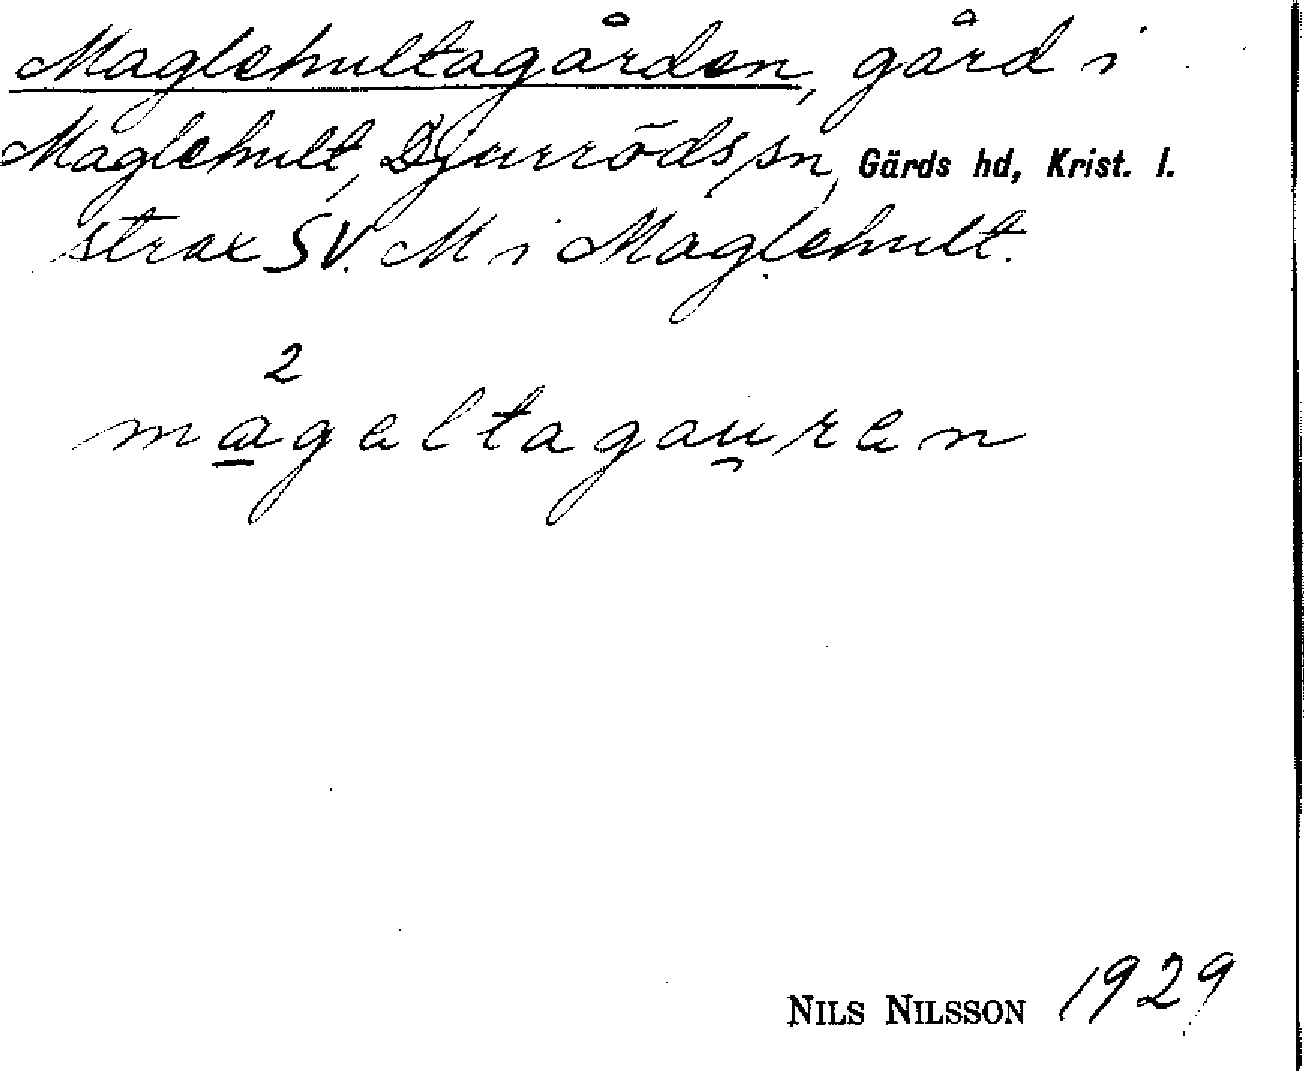 Maglehultagården, gård i
Maglehult, Djurröds sn, Gärds hd, Krist. l.
strax SV. M i Maglehult.
2
mageltagau̯ren
NILS NILSSON 1929